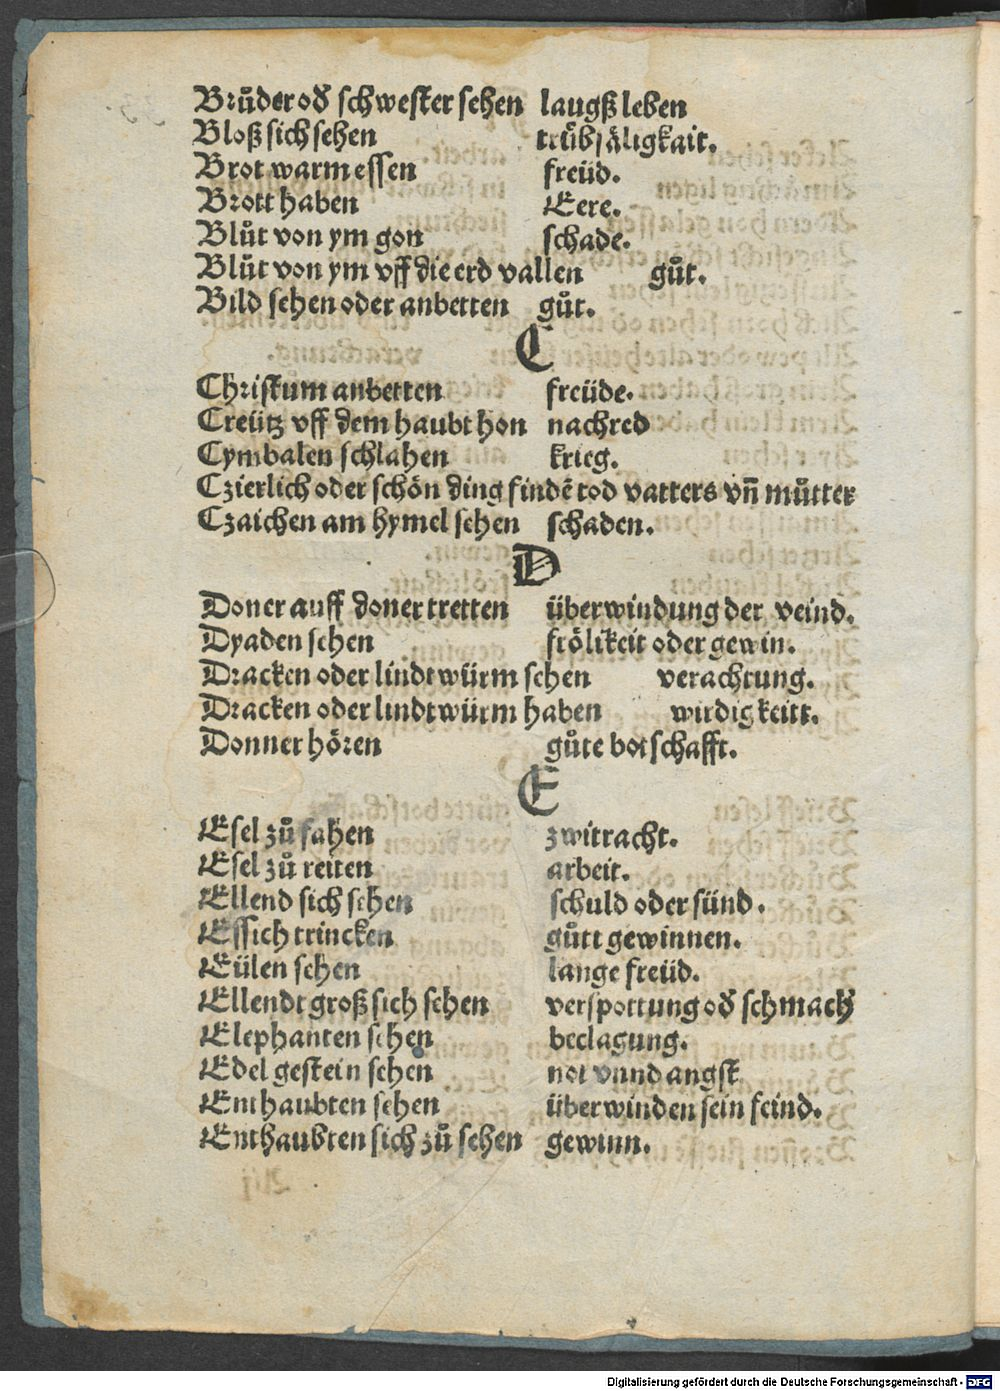 Brůder od̕ schwester sehen laugß leben
Bloß sich sehen trübsäligkait.
Brot warm essen freüd.
Brott haben Eere.
Blůt von ym gon schade.
Blůt von ym vff die erd vallen gůt.
Bild sehen oder anbetten gůt.
C
Christum anbetten freüde.
Creütz vff dem haubt hon nachred
Cymbalen schlahen krieg.
Czierlich oder schön ding findē tod vatters vn̄ můtter
Czaichen am hymel sehen schaden.
D
Doner auff doner tretten überwindung der veind.
Dyaden sehen frölikeit oder gewin.
Dracken oder lindtwürm sehen verachtung.
Dracken oder lindtwürm haben wirdigkeitt.
Donner hören gůte botschafft.
E
Esel zů fahen zwitracht.
Esel zů reiten arbeit.
Ellend sich sehen schuld oder sünd.
Essich trincken gůtt gewinnen.
Eülen sehen lange freüd.
Ellendt groß sich sehen verspottung od̕ schmach
Elephanten sehen beclagung.
Edel gestein sehen not vnnd angst
Enthaubten sehen überwinden sein feind.
Enthaubten sich zů sehen gewinn.
Digitalisierung gefördert durch die Deutsche Forschungsgemeinschaft - DFG